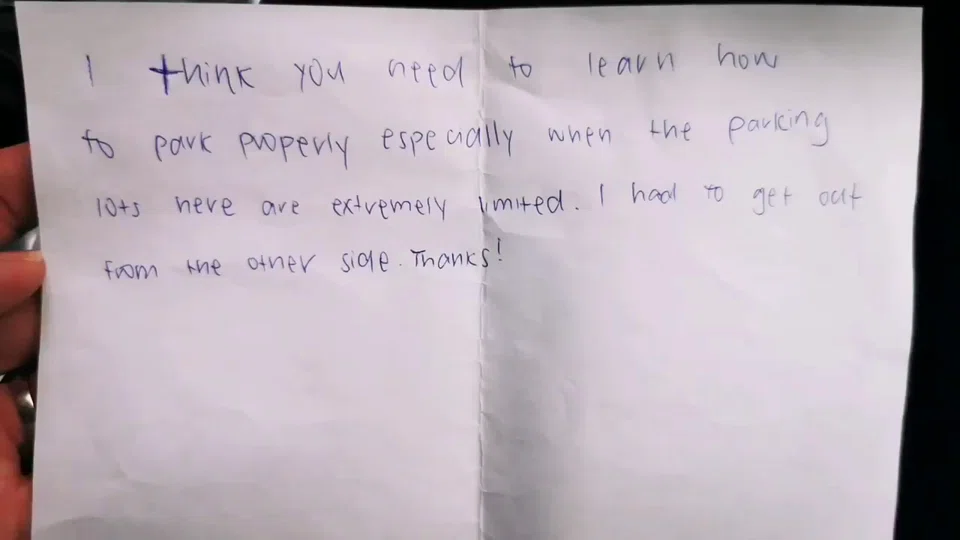 I think you need to learn how
to park properly especially when the parking
lots here are extremely limited. I had to get out
from the other side. Thanks!